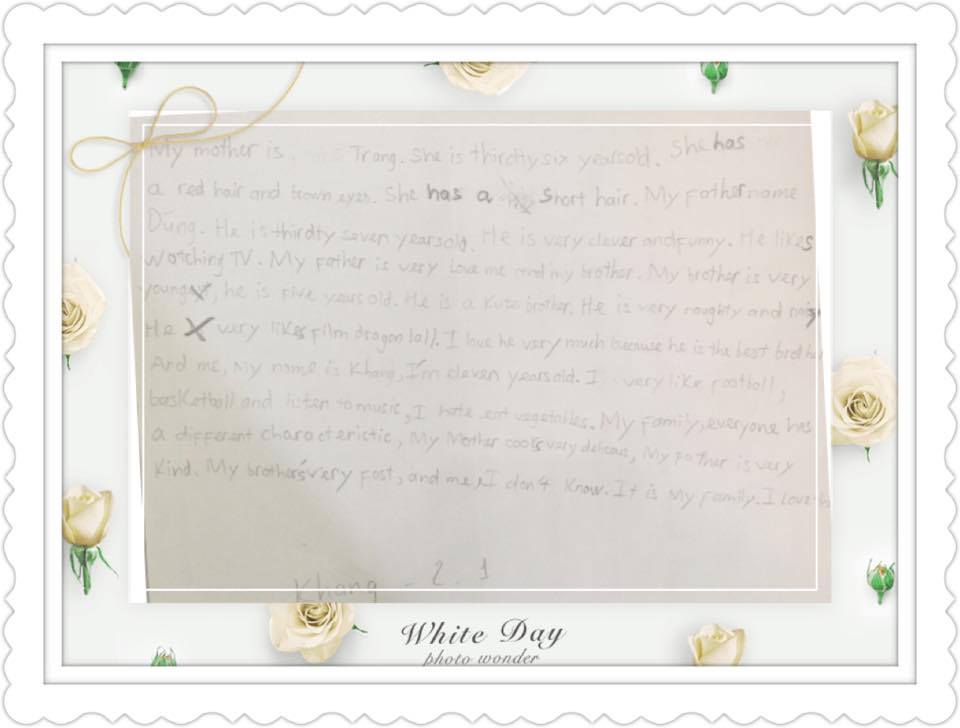 My mother is Trang. She is thirdty six yearsold. She has
a red hair and brown eyes. She has a Short hair. My father name
Dũng. He is thirdty seven yearsold. He is very clever and funny. He likes
Watching TV. My father is very love me and my brother. My brother is very
young, he is five years old. He is a kute brother. He is very noughty and
He very likes film dragon ball. I love he very much because he is the best brother
And me, My name is Khang, I'm eleven yearsold. I very like football,
basketball and listen to music, I hate eat vegetables. My family, everyone has
a different characterictic, My Mother cooks very delicous, My father is very
Kind. My brother's very fost, and me, I don't know. It is My family. I love
Khang - 2.1
White Day
photo wonder